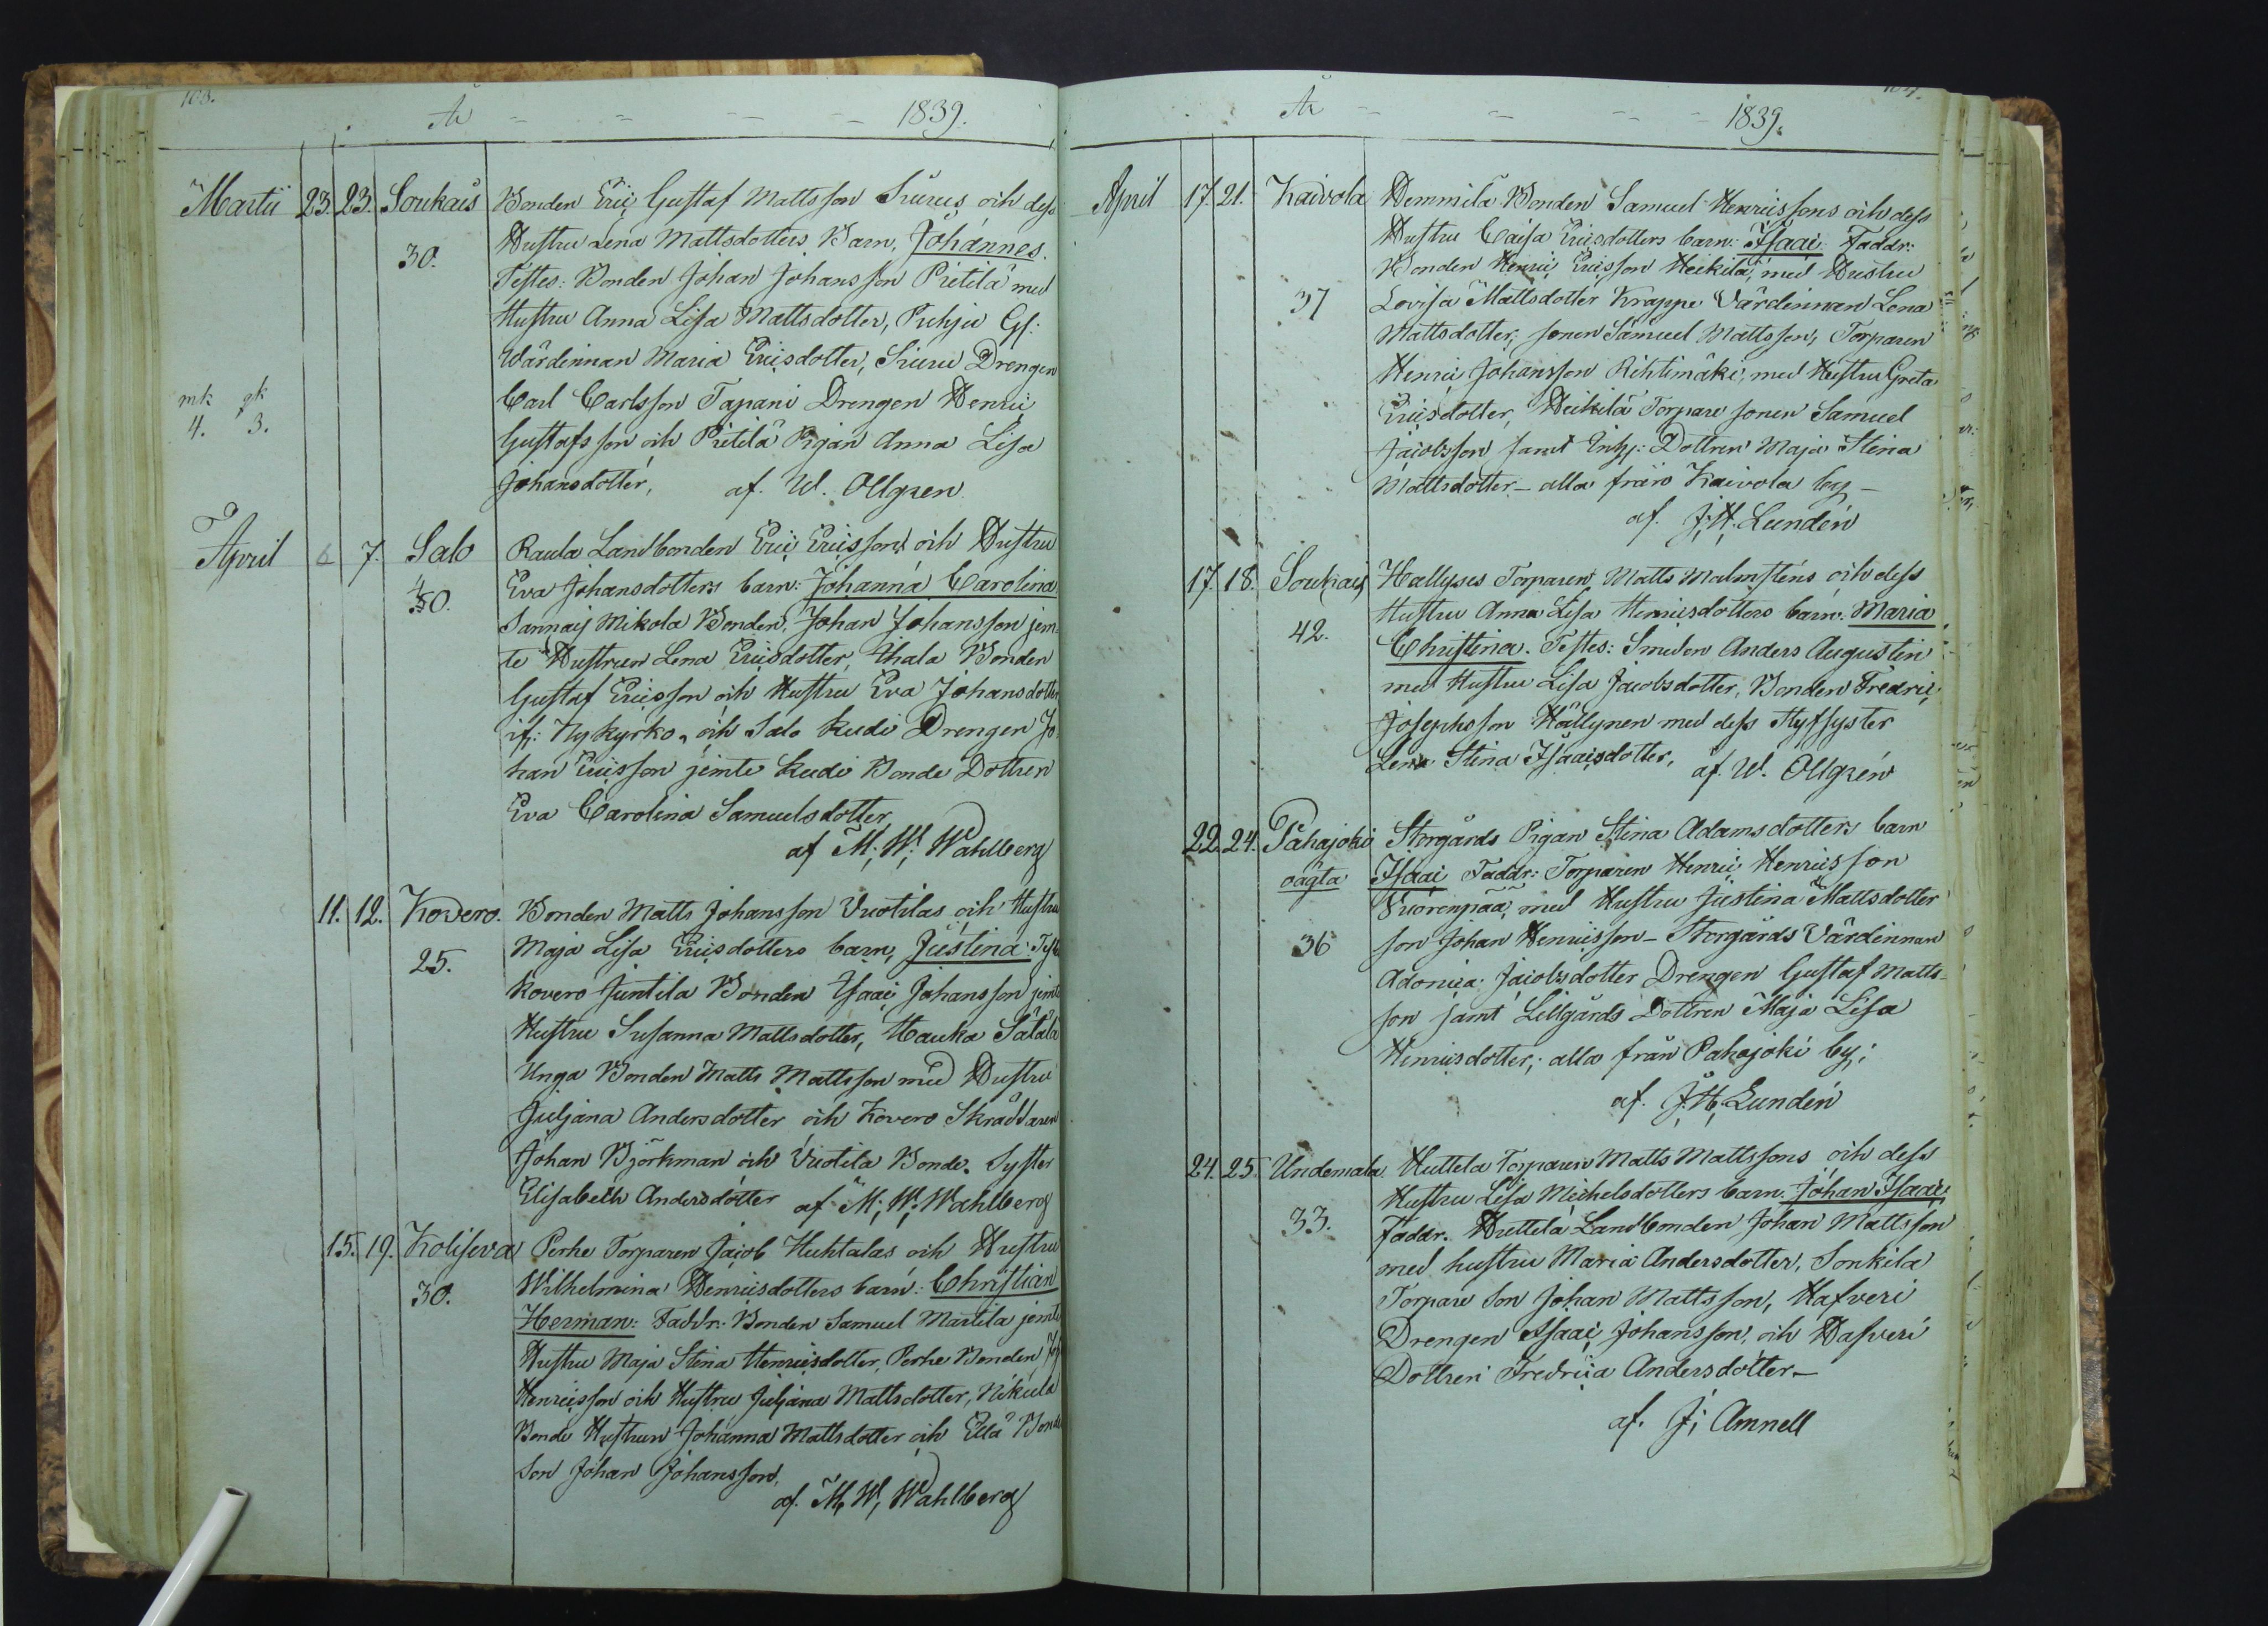 103.
År - - - - 1839.
Martii 23. 23. Soukais Bonden Eric Gustaf Mattsson Siurus och dess
30. Hustru Lena Mattsdotters Barn, Johannes.
Testes: Bonden Johan Johansson Pietilä med
Hustru Anna Lisa Mattsdotter,
Wärdinnan Maria Ericsdotter, Siuru Drengen
mk qk Carl Carlsson Tapani Drengen Henric
4. 3. Gustafsson och Pietilä Pigan Anna Lisa
Johansdotter, af. W. Ollgren
April 6 7. Salo Raula Landbonden Eric Ericssons och Hustru
40. Eva Johansdotters barn: Johanna Carolina
Sannais Mikola Bonden, Johan Johansson jem-
te Hustrun Lena Ericsdotter, Bonden
Gustaf Ericsson och Hustru Eva Johansdotter
if: Nykyrko, och Salo Kudi Drengen Jo-
han Ericsson jemte Kudi Bonde Dottren
Eva Carolina Samuelsdotter
af M. W. Wahlberg
11. 12. Kovero. Bonden Matts Johansson Vuotilas och Hustru
25. Maja Lisa Ericsdotters barn, Justina:
Kovero Juntila Bonden Isaac Johansson jemte
Hustru Susanna Mattsdotter, Hauka Satala
Unga Bonden Matts Mattsson med Hustru
Juljana Andersdotter och Kovero Skräddaren
Johan Björkman och Vuotila Bonde Syster
Elisabeth Andersdotter af M. W. Wahlberg
15. 19. Koliseva Perhe Torparen Jacob Huhtalas och Hustru
30. Wilhelmina Henricsdotters barn: Christian
Herman: Faddr: Bonden Samuel Martila jemte
Hustru Maja Stina Henricsdotter, Perhe Bonden
Henricsson och Hustru Juljana Mattsdotter, Nikula
Bonde Hustrun Johanna Mattsdotter och Eila Bonde
Son Johan Johansson,
af. M. W. Wahlberg
104.
År - - - - 1839.
April 17. 21. Kaivola Hemmilä Bonden Samuel Henricssons och dess
Hustru Caisa Ericsdotters barn: Isaac Faddr:
Bonden Henric Ericsson Heikilä, med Hustru
37 Lovisa Mattsdotter Krappe Värdinnan Lena
Mattsdotter, sonen Samuel Mattsson, Torparen
Henric Johansson Rihtimäki, med Hustru Greta
Ericsdotter, Heikilä Torpare sonen Samuel
Jacobsson samt Inhy: Dottren Maja Stina
Mattsdotter - alla från Kaivola by -
af. J. H. Lundén
17. 18. Soukais Hallyses Torparen Matts Malmsténs och dess
Hustru Anna Lisa Henricsdotters barn: Maria
42. Christina. Testes: Smeden Anders Augustin
med Hustru Lisa Jacobsdotter, Bonden Fredric
Josephsson Hällynen med dess Styfsyster
Lena Stina Isaacsdotter, af. W. Ollgrén
22. 24. Pahajoki Storgårds Pigan Stina Adamsdotters barn
oägta Isaac Faddr: Torparen Henric Henricsson
Vuorenpää med Hustru Justina Mattsdotter
36 son Johan Henricsson - Storgårds Värdinnan
Adonica Jacobsdotter Drengen Gustaf Matts-
son samt Lillgårds Dottren Maja Lisa
Henricsdotter; alla från Pahajoki by;
af. J. H. Lundén
24. 25. Undemala Huttela Torparen Matts Mattssons och dess
Hustru Lisa Michelsdotters barn. Johan Isaac,
33. Faddr. Huttela Landbonden Johan Mattsson
med hustru Maria Andersdotter, Sonkila
Torpare Son Johan Mattsson, Hafveri
Drengen Isaac Johansson, och Hafveri
Dottren Fredrica Andersdotter -
af. J. Amnell